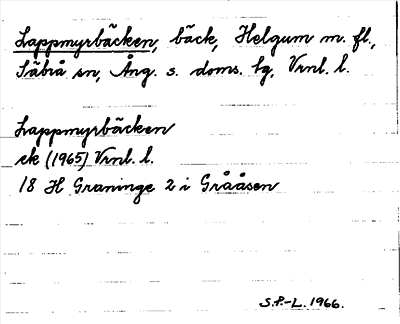 Lappmyrbäcken, bäck, Helgum m. fl.,
Säbrå sn, Ång. s. doms. tg, Vrnl. l.
Lappmyrbäcken
ek (1965) Vrnl. l.
18 H Graninge 2 i Grååsen
S.P.-L. 1966.